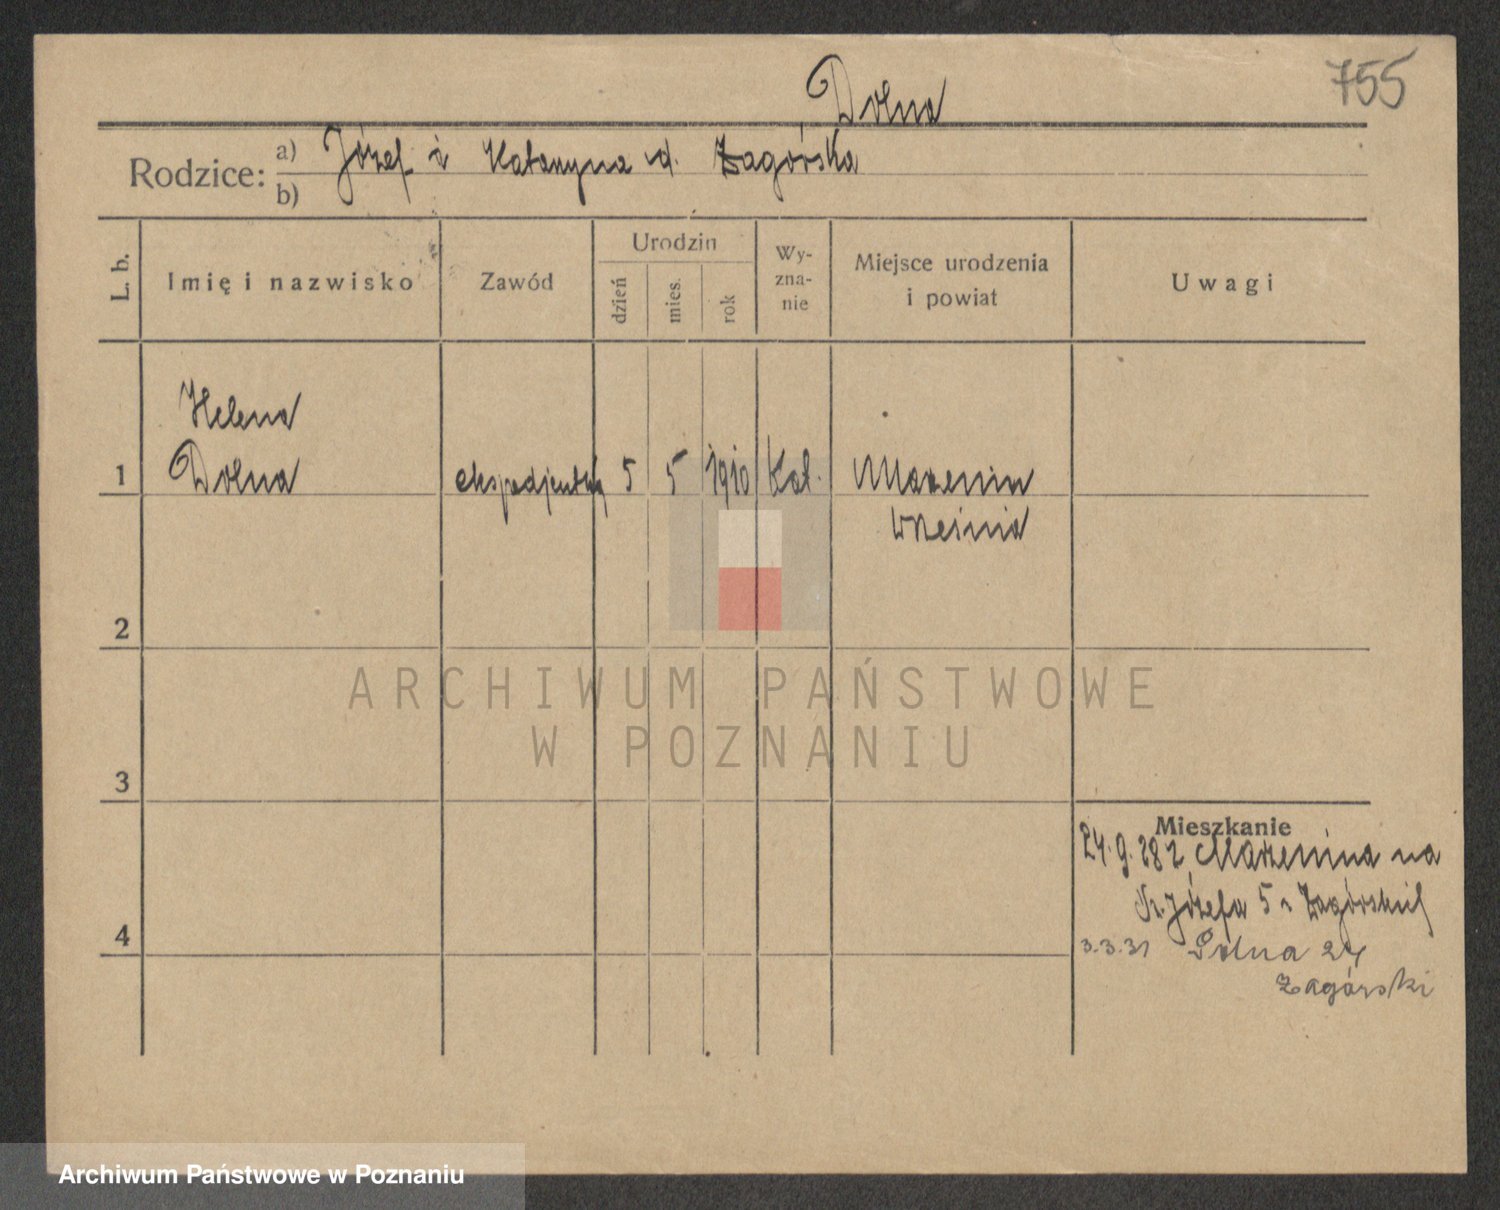 755
Dolna
Rodzice:
a) Józef i Katarzyna z d. Zagórska
b)
L. b.
Imię i nazwisko
Zawód
Urodzin
dzień
mies.
rok
Wy-
zna-
nie
Miejsce urodzenia
i powiat
Uwagi
Helena
1 Dolna ekspedjentka 5 5 1910 Kat. Marzenin
Września
2
ARCHIWUM PAŃSTWOWE
W POZNANIU
3
Mieszkanie
24.9.28 z Marzenina na
Józefa 5 Zagórski
4
3.3.31 Polna 24
Zagórski
Archiwum Państwowe w Poznaniu